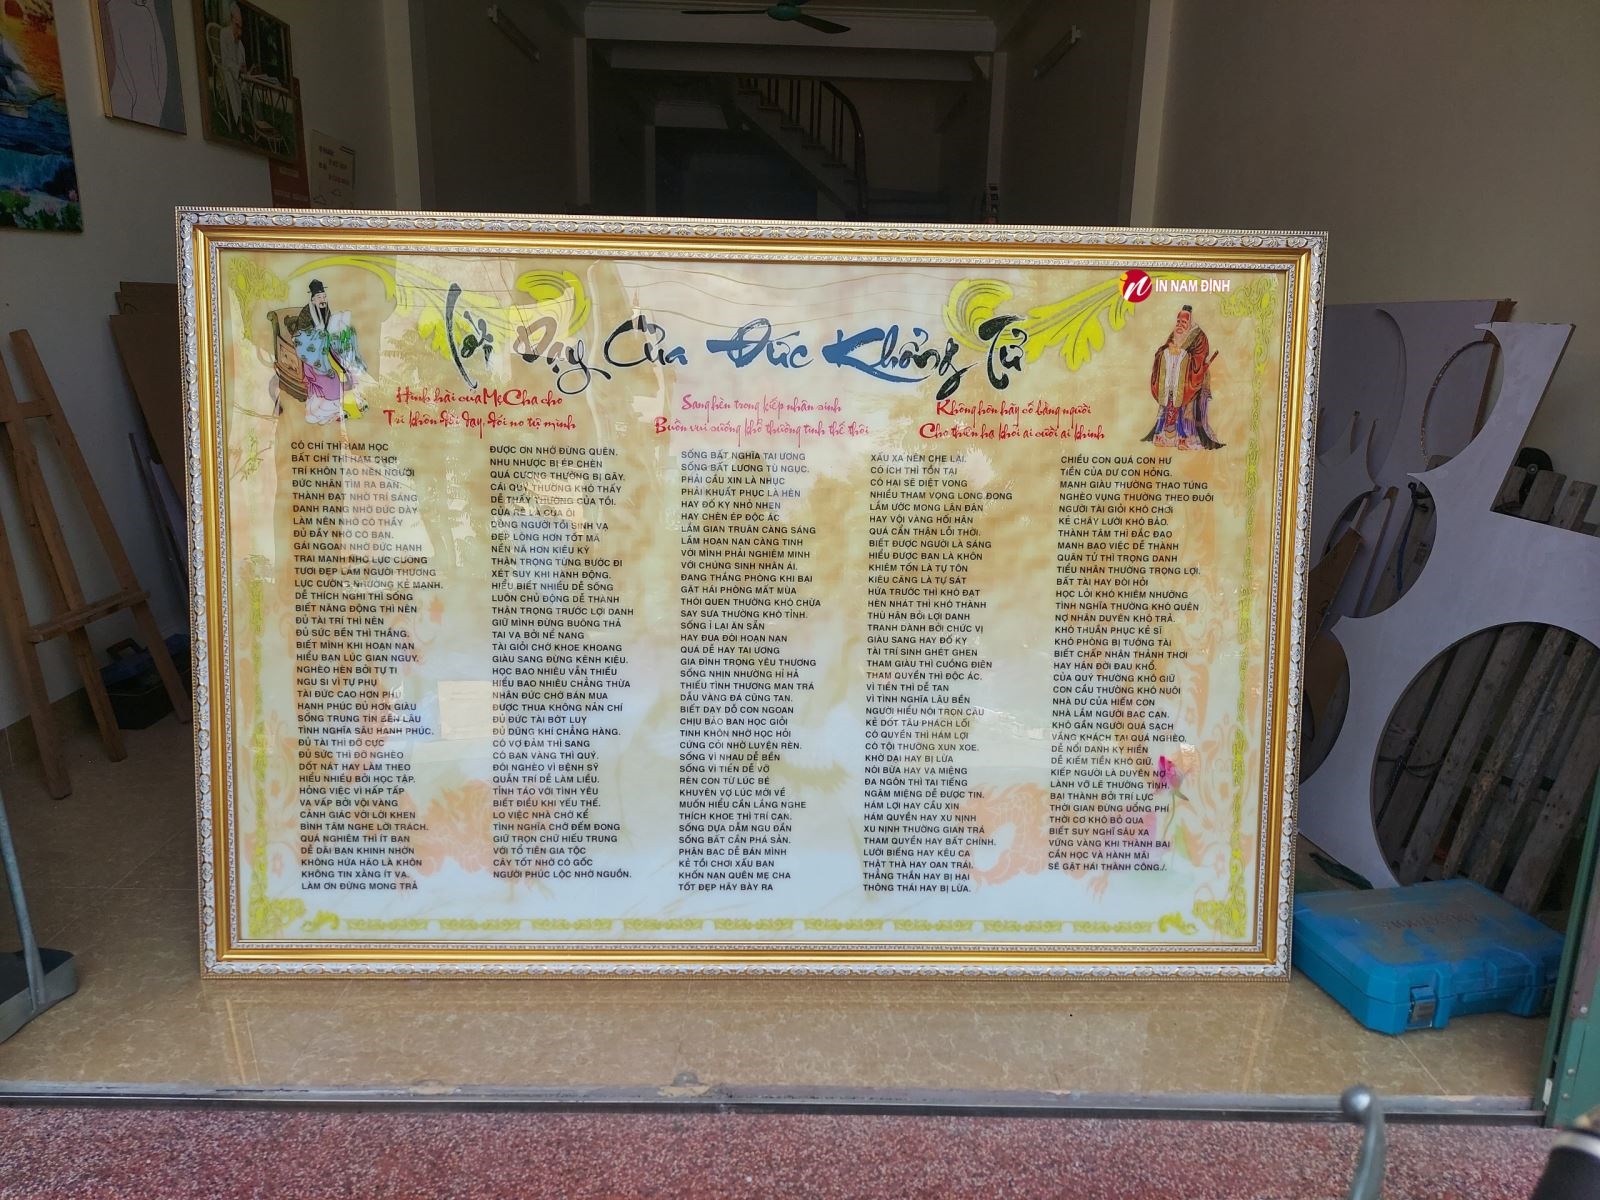 IN NAM ĐỊNH
Lời Dạy Của Đức Khổng Tử
Hình hài của Mẹ Cha cho
Trí khôn đời dạy, đói no tự mình
Sang hèn trong kiếp nhân sinh
Buồn vui sướng khổ thường tình thế thôi
Không hơn hãy cố bằng người
Cho thiên hạ khỏi ai cười ai khinh
CÓ CHÍ THÌ HAM HỌC
BẤT CHÍ THÌ HAM CHƠI
TRÍ KHÔN TẠO NÊN NGƯỜI
ĐỨC NHÂN TÌM RA BẠN.
THÀNH ĐẠT NHỜ TRÍ SÁNG
DANH RẠNG NHỜ ĐỨC DÀY
LÀM NÊN NHỜ CÓ THẦY
ĐỦ ĐẦY NHỜ CÓ BẠN.
GÁI NGOAN NHỜ ĐỨC HẠNH
TRAI MẠNH NHỜ LỰC CƯỜNG
TƯƠI ĐẸP LẮM NGƯỜI THƯƠNG
LỰC CƯỜNG NHƯỜNG KẺ MẠNH.
DỄ THÍCH NGHI THÌ SỐNG
BIẾT NĂNG ĐỘNG THÌ NÊN
ĐỦ TÀI TRÍ THÌ NÊN
ĐỦ SỨC BỀN THÌ THẮNG.
BIẾT MÌNH KHI HOẠN NẠN
HIỂU BẠN LÚC GIAN NGUY.
NGHÈO HÈN BỞI TỰ TI
NGU SI VÌ TỰ PHỤ
TÀI ĐỨC CAO HƠN PHÚ
HẠNH PHÚC ĐỦ HƠN GIÀU
SỐNG TRUNG TÍN BỀN LÂU
TÌNH NGHĨA SÂU HẠNH PHÚC.
ĐỦ TÀI THÌ ĐỠ CỰC
ĐỦ SỨC THÌ ĐỠ NGHÈO
DỐT NÁT HAY LÀM THEO
HIỂU NHIỀU BỞI HỌC TẬP.
HỎNG VIỆC VÌ HẤP TẤP
VA VẤP BỞI VỘI VÀNG
CẢNH GIÁC VỚI LỜI KHEN
BÌNH TÂM NGHE LỜI TRÁCH.
QUÁ NGHIÊM THÌ ÍT BẠN
DỄ DÃI BẠN KHINH NHỜN
KHÔNG HỨA HÃO LÀ KHÔN
KHÔNG TIN XẰNG ÍT VẠ.
LÀM ƠN ĐỪNG MONG TRẢ
ĐƯỢC ƠN NHỚ ĐỪNG QUÊN.
NHU NHƯỢC BỊ ÉP CHÈN
QUÁ CƯƠNG THƯỜNG BỊ GÃY.
CÁI QUÝ THƯỜNG KHÓ THẤY
DỄ THẤY THƯỜNG CỦA TỒI.
CỦA RẺ LÀ CỦA ÔI
DÙNG NGƯỜI TỒI SINH VẠ
ĐẸP LÒNG HƠN TỐT MÃ
NỀN NÃ HƠN KIÊU KỲ
THẬN TRỌNG TỪNG BƯỚC ĐI
XÉT SUY KHI HÀNH ĐỘNG.
HIỂU BIẾT NHIỀU DỄ SỐNG
LUÔN CHỦ ĐỘNG DỄ THÀNH
THẬN TRỌNG TRƯỚC LỢI DANH
GIỮ MÌNH ĐỪNG BUÔNG THẢ
TAI VẠ BỞI NỂ NANG
TÀI GIỎI CHỚ KHOE KHOANG
GIÀU SANG ĐỪNG KÊNH KIỆU.
HỌC BAO NHIÊU VẪN THIẾU
HIỂU BAO NHIÊU CHẲNG THỪA
NHÂN ĐỨC CHỚ BÁN MUA
ĐƯỢC THUA KHÔNG NẢN CHÍ
ĐỦ ĐỨC TÀI BỚT LỤY
ĐỦ DŨNG KHÍ CHẲNG HÀNG.
CÓ VỢ ĐẢM THÌ SANG
CÓ BẠN VÀNG THÌ QUÝ.
ĐÓI NGHÈO VÌ BỆNH SỸ
QUẪN TRÍ DỄ LÀM LIỀU.
TỈNH TÁO VỚI TÌNH YÊU
BIẾT ĐIỀU KHI YẾU THẾ.
LO VIỆC NHÀ CHỚ KỂ
TÌNH NGHĨA CHỚ ĐẾM ĐONG
GIỮ TRỌN CHỮ HIẾU TRUNG
VỚI TỔ TIÊN GIA TỘC
CÂY TỐT NHỜ CÓ GỐC
NGƯỜI PHÚC LỘC NHỜ NGUỒN.
SỐNG BẤT NGHĨA TAI ƯƠNG
SỐNG BẤT LƯƠNG TÙ NGỤC.
PHẢI CẦU XIN LÀ NHỤC
PHẢI KHUẤT PHỤC LÀ HÈN
HAY ĐỐ KỴ NHỎ NHEN
HAY CHÈN ÉP ĐỘC ÁC
LẮM GIAN TRUÂN CÀNG SÁNG
LẮM HOẠN NẠN CÀNG TINH
VỚI MÌNH PHẢI NGHIÊM MINH
VỚI CHÚNG SINH NHÂN ÁI.
ĐANG THẮNG PHÒNG KHI BẠI
GẶT HÁI PHÒNG MẤT MÙA
THÓI QUEN THƯỜNG KHÓ CHỪA
SAY SƯA THƯỜNG KHÓ TỈNH.
SỐNG Ỉ LẠI ĂN SẴN
HAY ĐUA ĐÒI HOẠN NẠN
QUÁ DỄ HAY TAI ƯƠNG
GIA ĐÌNH TRỌNG YÊU THƯƠNG
SỐNG NHỊN NHƯỜNG HỈ HẢ
THIẾU TÌNH THƯƠNG MAN TRÁ
DẪU VÀNG ĐÁ CŨNG TAN.
BIẾT DẠY DỖ CON NGOAN
CHỊU BẢO BAN HỌC GIỎI
TINH KHÔN NHỜ HỌC HỎI
CỨNG CỎI NHỜ LUYỆN RÈN.
SỐNG VÌ NHAU DỄ BỀN
SỐNG VÌ TIỀN DỄ VỠ
RÈN CON TỪ LÚC BÉ
KHUYÊN VỢ LÚC MỚI VỀ
MUỐN HIỂU CẦN LẮNG NGHE
THÍCH KHOE THÌ TRÍ CẠN.
SỐNG DỰA DẪM NGU ĐẦN
SỐNG BẤT CẦN PHÁ SẢN.
PHẢN BẠC DỄ BÁN MÌNH
KẺ TỒI CHƠI XẤU BẠN
KHỐN NẠN QUÊN MẸ CHA
TỐT ĐẸP HÃY BÀY RA
XẤU XA NÊN CHE LẠI.
CÓ ÍCH THÌ TỒN TẠI
CÓ HẠI SẼ DIỆT VONG
NHIỀU THAM VỌNG LONG ĐONG
LẮM ƯỚC MONG LẬN ĐẬN
HAY VỘI VÀNG HỐI HẬN
QUÁ CẨN THẬN LỖI THỜI.
BIẾT ĐƯỢC NGƯỜI LÀ SÁNG
HIỂU ĐƯỢC BẠN LÀ KHÔN
KHIÊM TỐN LÀ TỰ TÔN
KIÊU CĂNG LÀ TỰ SÁT
HỨA TRƯỚC THÌ KHÓ ĐẠT
HÈN NHÁT THÌ KHÓ THÀNH
THÙ HẬN BỞI LỢI DANH
TRANH DÀNH BỞI CHỨC VỊ
GIÀU SANG HAY ĐỐ KỴ
TÀI TRÍ SINH GHÉT GHEN
THAM GIÀU THÌ CUỒNG ĐIÊN
THAM QUYỀN THÌ ĐỘC ÁC.
VÌ TIỀN THÌ DỄ TAN
VÌ TÌNH NGHĨA LÂU BỀN
NGƯỜI HIỂU NÓI TRỌN CÂU
KẺ DỐT TÂU PHÁCH LỐI
CÓ QUYỀN THÌ HÁM LỢI
CÓ TỘI THƯỜNG XUN XOE.
KHỜ DẠI HAY BỊ LỪA
NÓI BỪA HAY VẠ MIỆNG
ĐA NGÔN THÌ TAI TIẾNG
NGẬM MIỆNG DỄ ĐƯỢC TIN.
HÁM LỢI HAY CẦU XIN
HÁM QUYỀN HAY XU NỊNH
XU NỊNH THƯỜNG GIAN TRÁ
THAM QUYỀN HAY BẤT CHÍNH.
LƯỜI BIẾNG HAY KÊU CA
THẬT THÀ HAY OAN TRÁI.
THẲNG THẮN HAY BỊ HẠI
THÔNG THÁI HAY BỊ LỪA.
CHIỀU CON QUÁ CON HƯ
TIỀN CỦA DƯ CON HỎNG.
MẠNH GIÀU THƯỜNG THAO TÚNG
NGHÈO VỤNG THƯỜNG THEO ĐUÔI
NGƯỜI TÀI GIỎI KHÓ CHƠI
KẺ CHÂY LƯỜI KHÓ BẢO.
THÀNH TÂM THÌ ĐẮC ĐẠO
MẠNH BẠO VIỆC DỄ THÀNH
QUÂN TỬ THÌ TRỌNG DANH
TIỂU NHÂN THƯỜNG TRỌNG LỢI.
BẤT TÀI HAY ĐÒI HỎI
HỌC LỎI KHÓ KHIÊM NHƯỜNG
TÌNH NGHĨA THƯỜNG KHÓ QUÊN
NỢ NHÂN DUYÊN KHÓ TRẢ.
KHÓ THUẦN PHỤC KẺ SĨ
KHÓ PHÒNG BỊ TƯỚNG TÀI
BIẾT CHẤP NHẬN THẢNH THƠI
HAY HẬN ĐỜI ĐAU KHỔ.
CỦA QUÝ THƯỜNG KHÓ GIỮ
CON CẦU THƯỜNG KHÓ NUÔI
NHÀ DƯ CỦA HIẾM CON
NHÀ LẮM NGƯỜI BẠC CẠN.
KHÓ GẦN NGƯỜI QUÁ SẠCH
VẮNG KHÁCH TẠI QUÁ NGHÈO.
DỄ NỔI DANH KỲ HIỀN
DỄ KIẾM TIỀN KHÓ GIỮ.
KIẾP NGƯỜI LÀ DUYÊN NỢ
LÀNH VỠ LẼ THƯỜNG TÌNH.
BẠI THÀNH BỞI TRÍ LỰC
THỜI GIAN ĐỪNG UỔNG PHÍ
THỜI CƠ KHÓ BỎ QUA
BIẾT SUY NGHĨ SÂU XA
VỮNG VÀNG KHI THÀNH BẠI
CẦN HỌC VÀ HÀNH MÃI
SẼ GẶT HÁI THÀNH CÔNG./.